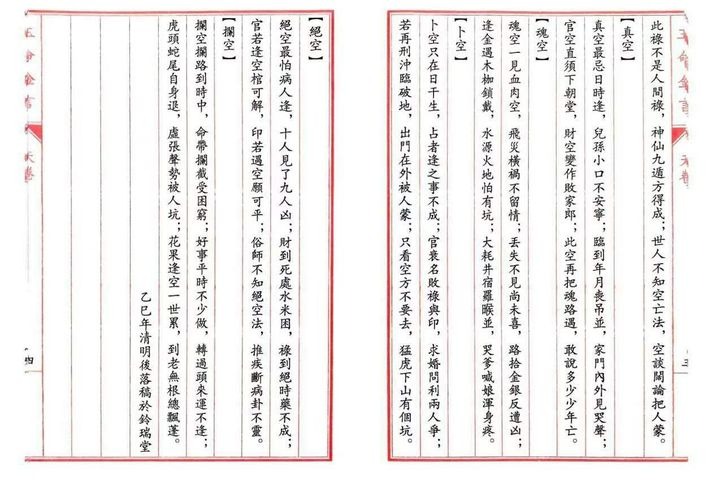 此祿不是人間祿,神仙九遁方得成;世人不知空亡法,空談闊論把人蒙。
【真空】
真空最忌日時逢,兒孫小口不安寧;臨到年月喪吊並,家門內外見哭聲;
官空直須下朝堂,財空變作敗家郎;此空再把魂路遇,敢說多少少年亡。
【魂空】
魂空一見血肉空,飛災橫禍不留情;丟失不見尚未喜,路拾金銀反遭凶;
逢金遇木枷鎖戴,水源火地怕有坑;大耗井宿羅睺並,哭爹喊娘渾身疼。
【卜空】
卜空只在日干生,占者逢之事不成;官衰名敗祿與印,求婚問利兩人爭;
若再刑沖臨破地,出門在外被人蒙;只看空方不要去,猛虎下山有個坑。
【絕空】
絕空最怕病人逢,十人見了九人凶;財到死處水米困,祿到絕時藥不成;
官若逢空棺可解,印若遇空願可平;俗師不知絕空法,推疾斷病卦不靈。
【攔空】
攔空攔路到時中,命帶攔截受困窮;好事平時不少做,轉過頭來運不逢;
虎頭蛇尾自身退,虛張聲勢被人坑;花果逢空一世累,到老無根總飄蓬。
乙巳年清明後落稿於鈴瑞堂
天卷
四